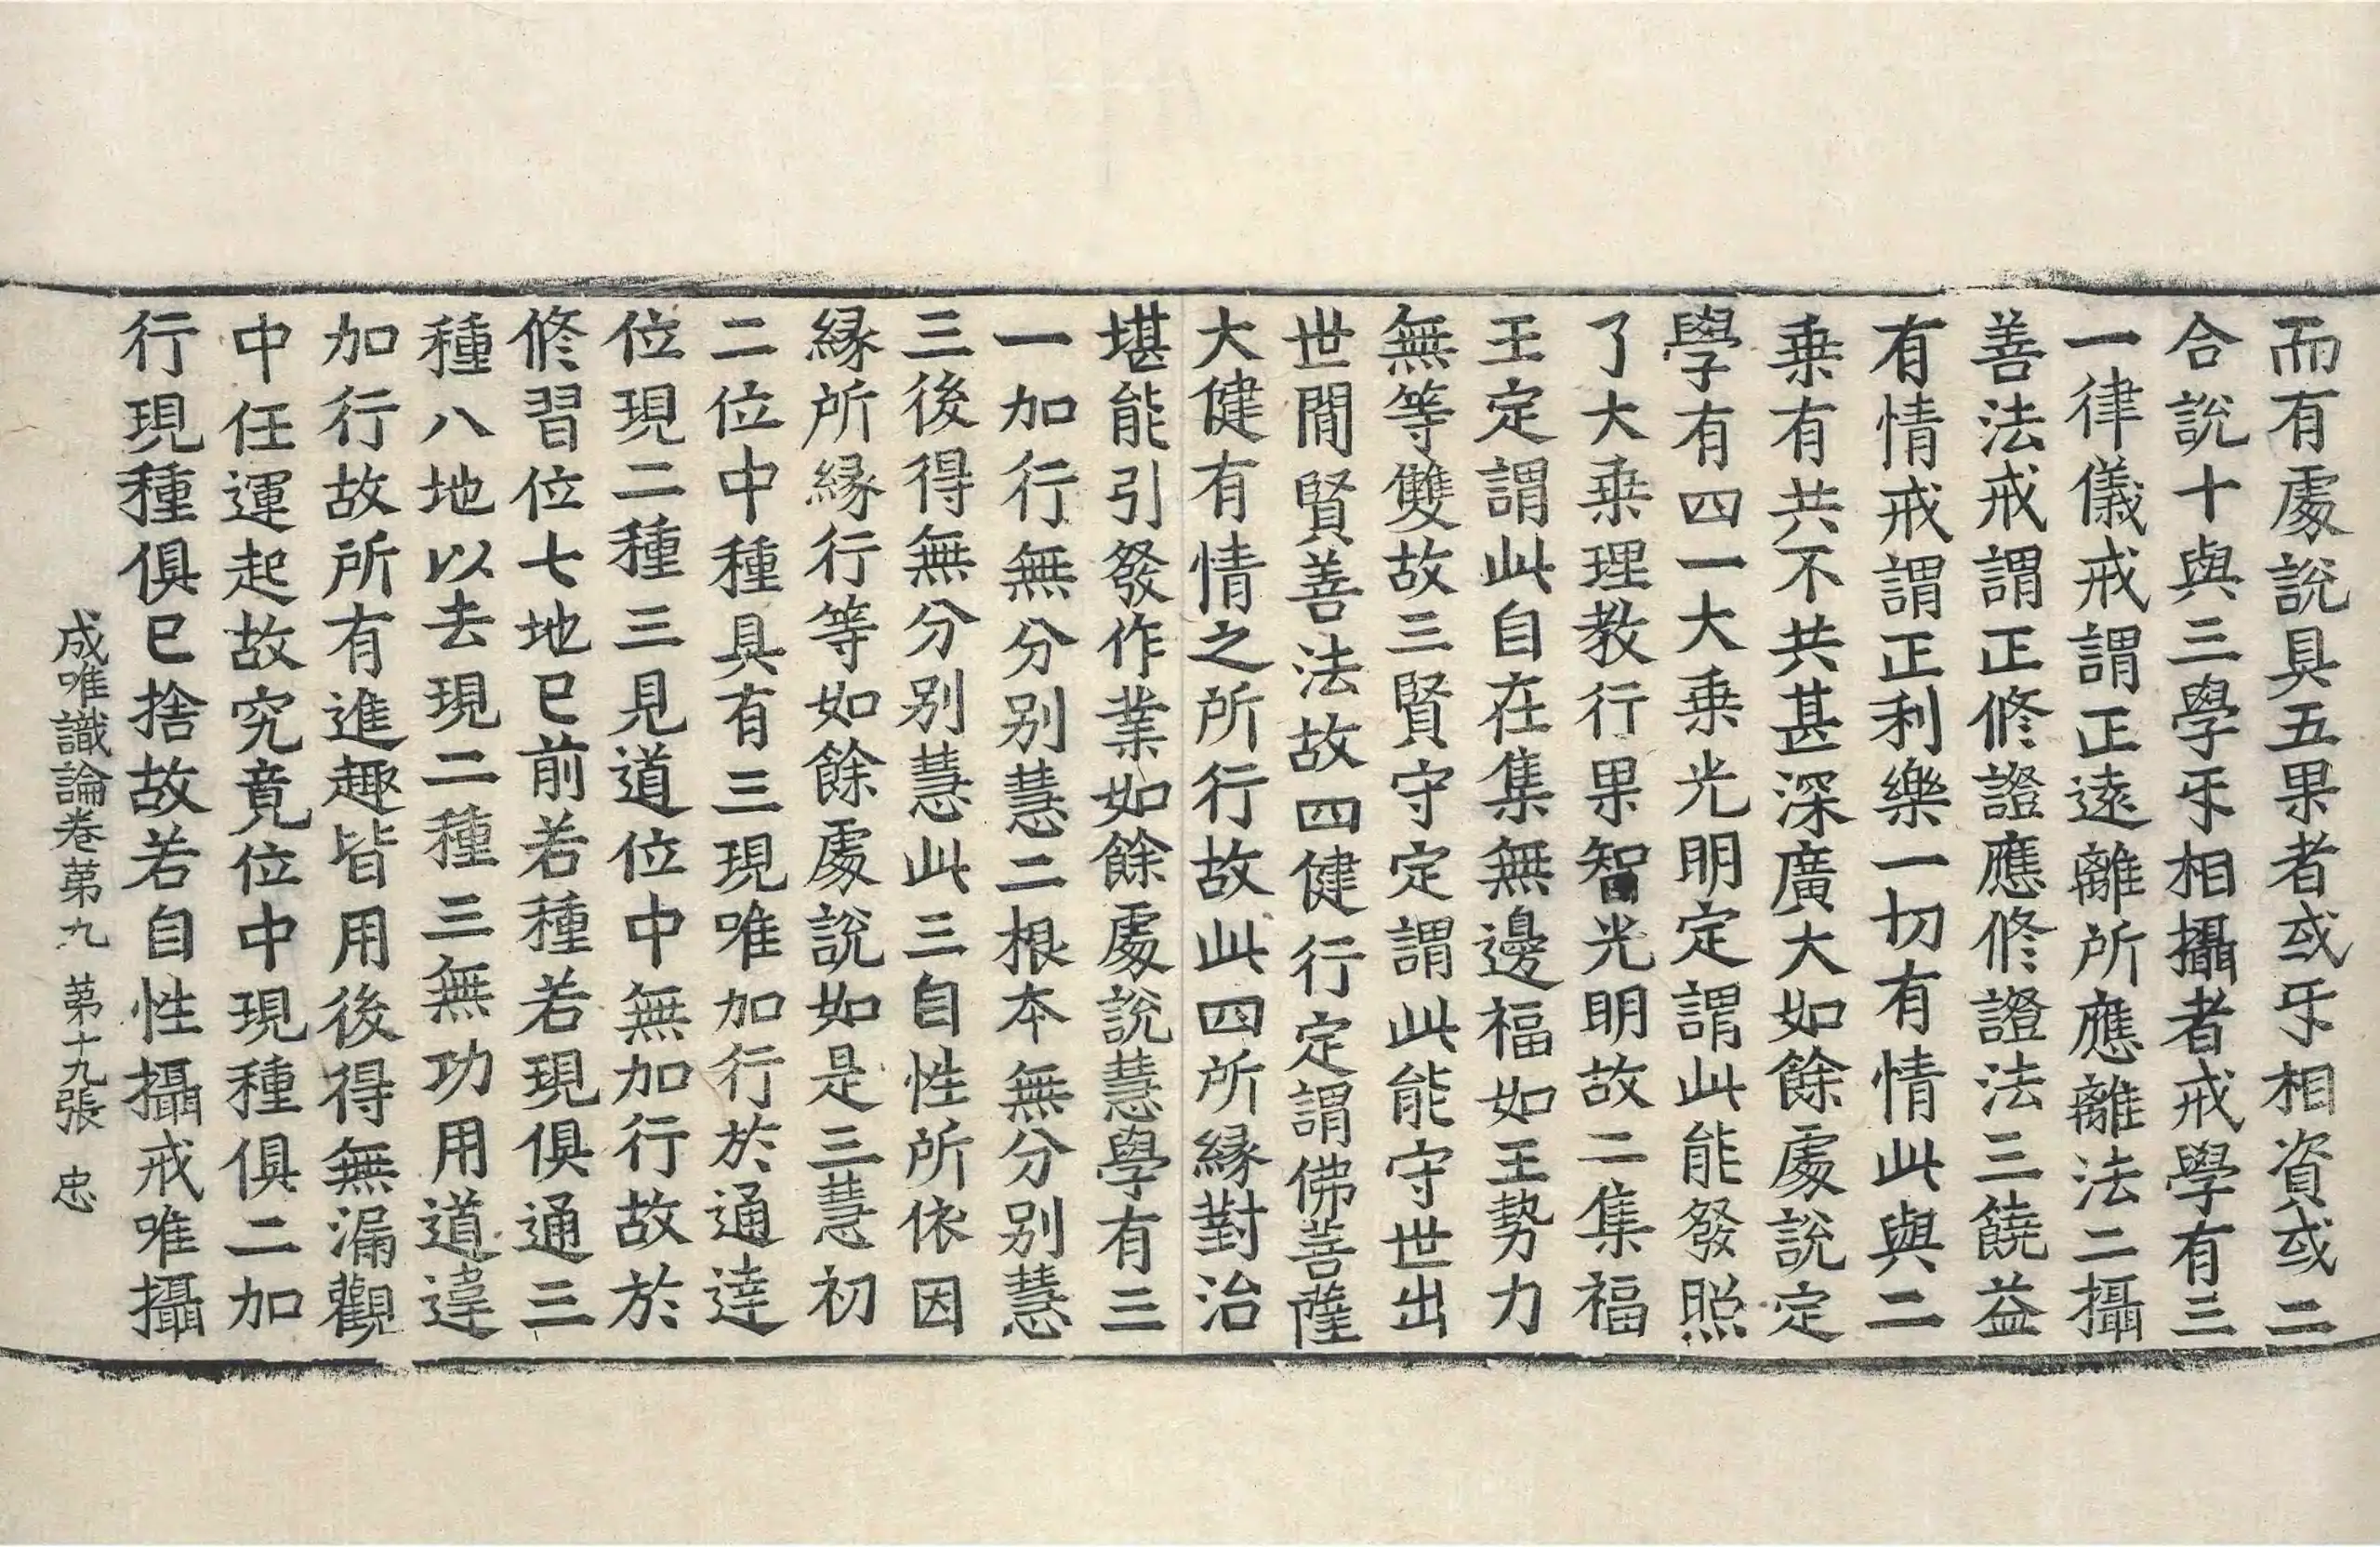 而有處說具五果者或㸦相資或二
合說十與三學㸦相攝者戒學有三
一律儀戒謂正遠離所應離法二攝
善法戒謂正修證應修證法三饒益
有情戒謂正利樂一切有情此與二
乗有共不共甚深廣大如餘處說定
學有四一大乗光明定謂此能發照
了大乗理教行果智光明故二集福
王定謂此自在集無邊福如王勢力
無等雙故三賢守定謂此能守世出
世間賢善法故四健行定謂佛菩薩
大健有情之所行故此四所縁對治
堪能引發作業如餘處說慧學有三
一加行無分別慧二根本無分別慧
三後得無分別慧此三自性所依因
縁所縁行等如餘處說如是三慧初
二位中種具有三現唯加行於通達
位現二種三見道位中無加行故於
修習位七地已前若種若現俱通三
種八地以去現二種三無功用道違
加行故所有進趣皆用後得無漏觀
中任運起故究竟位中現種俱二加
行現種俱已捨故若自性攝戒唯攝
成唯識論卷第九 第十九張 忠